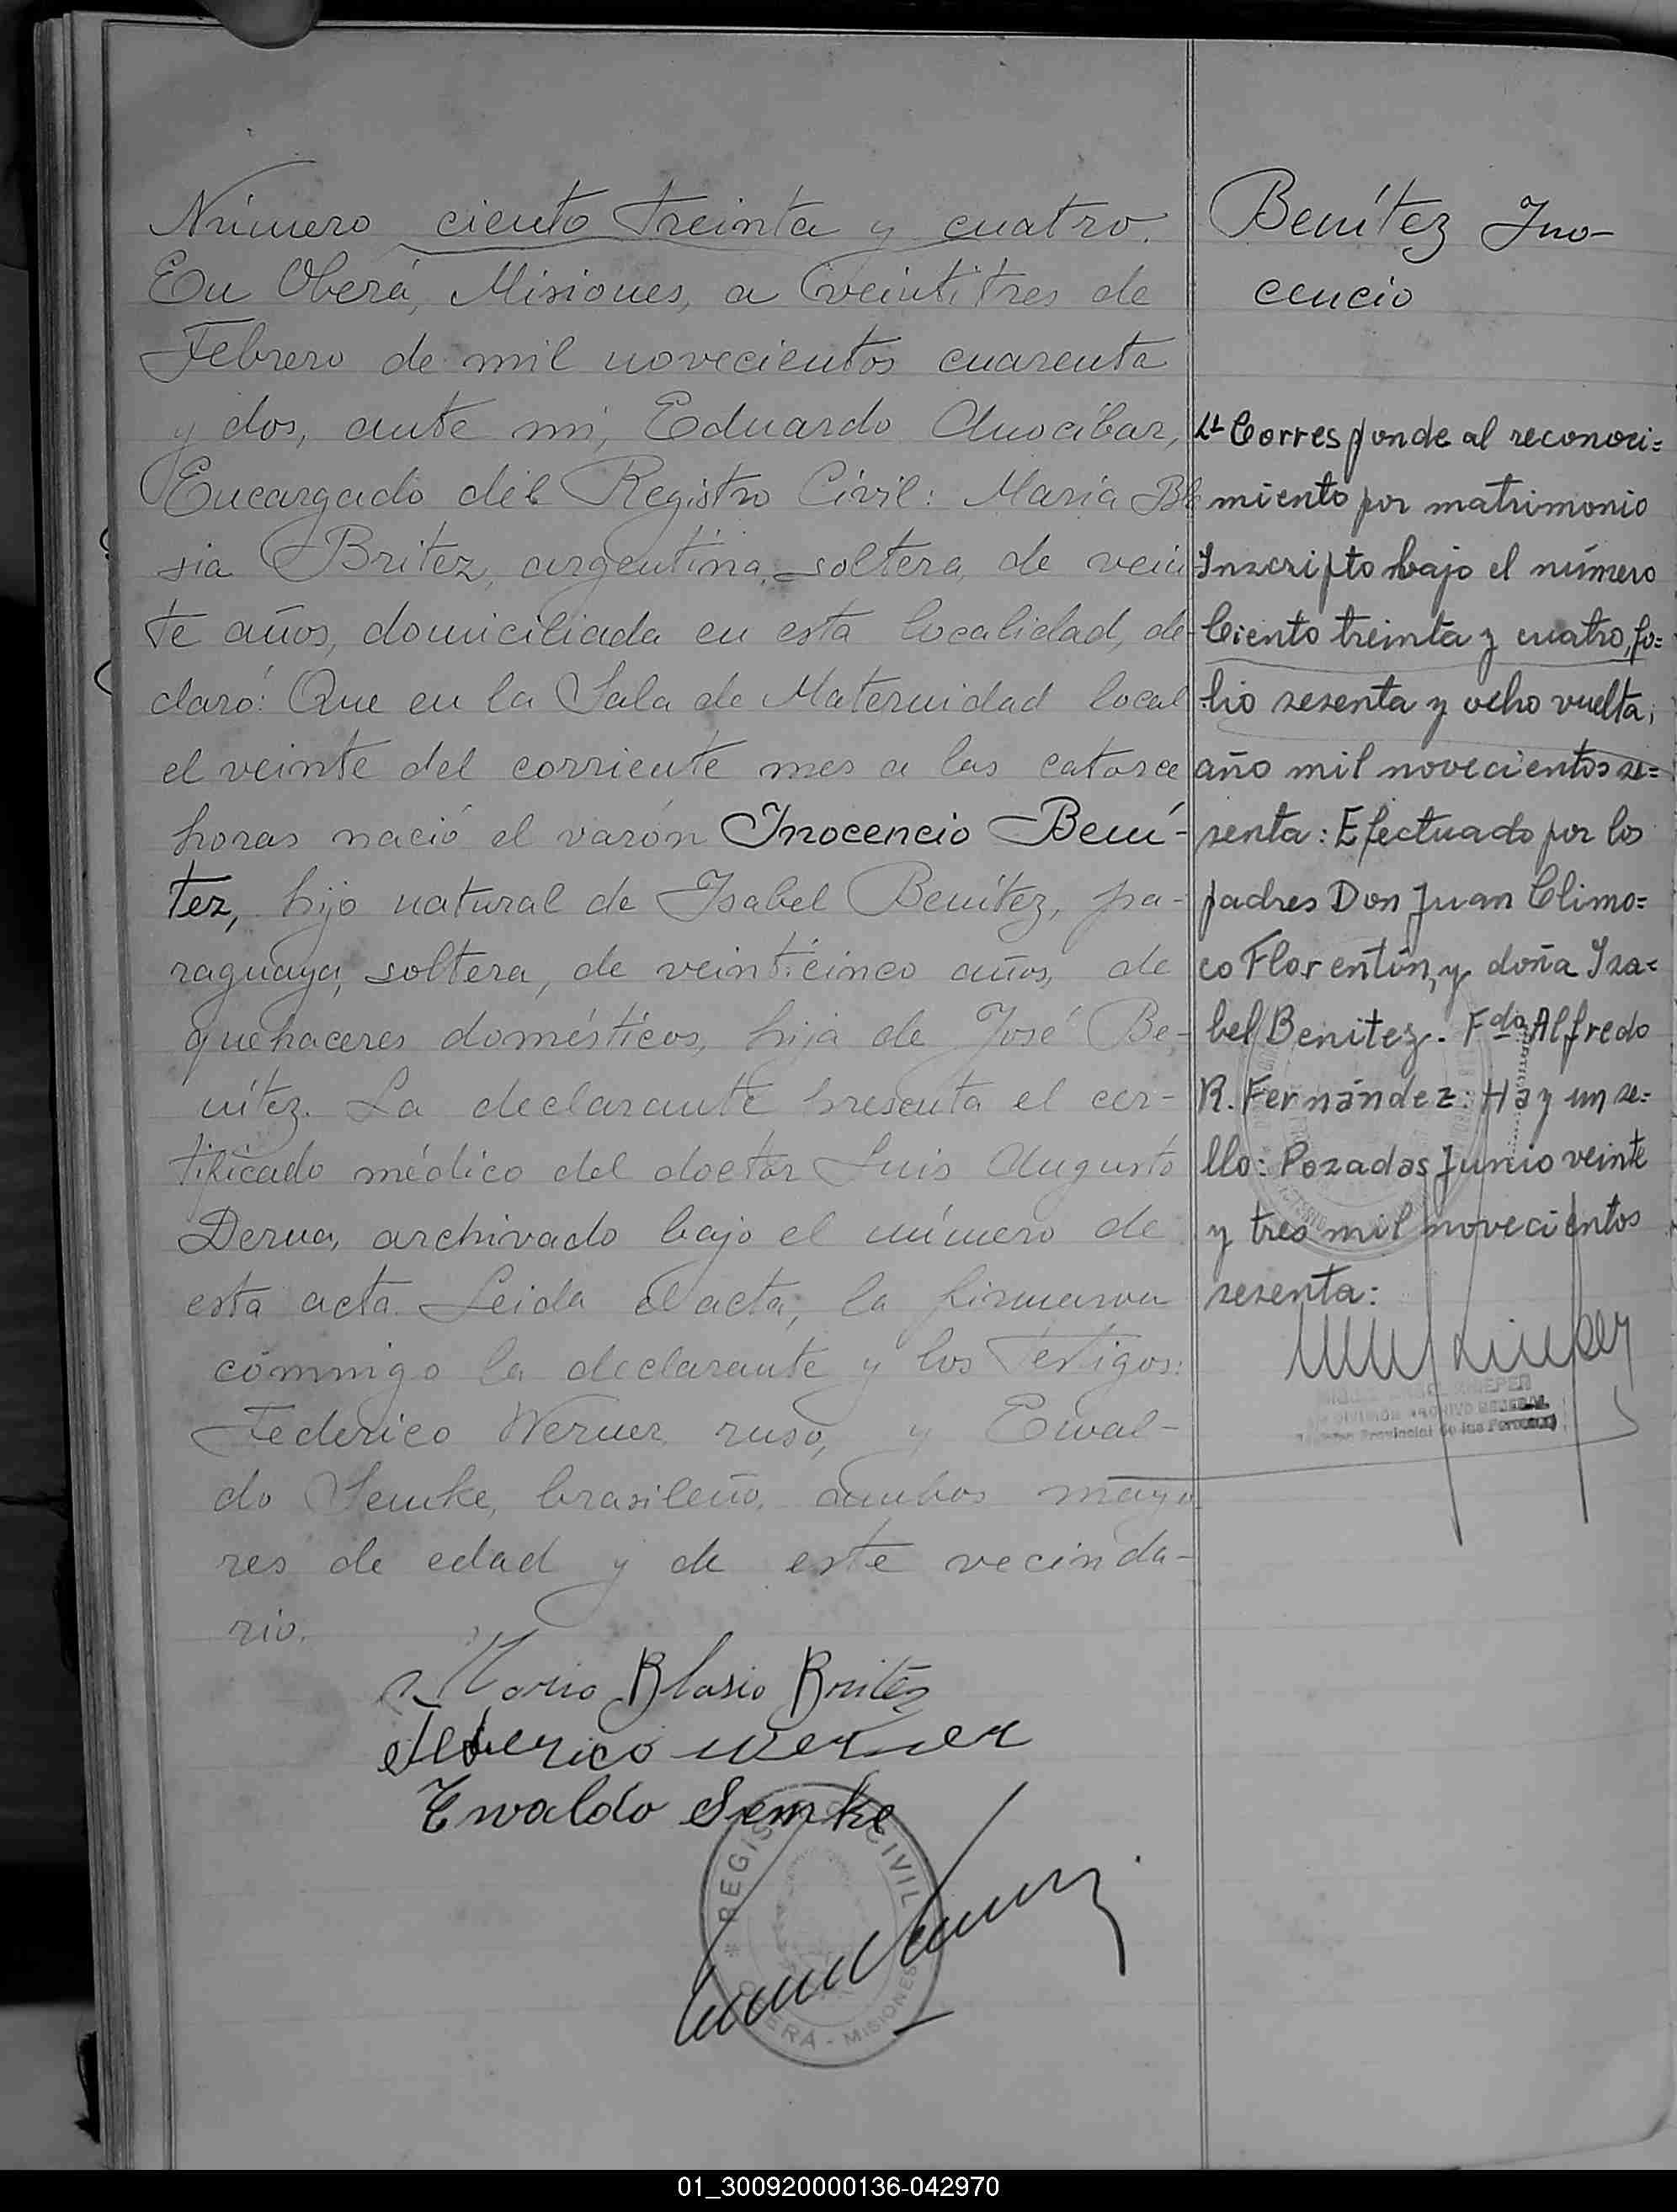 Número ciento treinta y cuatro.
En Oberá, Misiones, a veintitres de
Febrero de mil novecientos cuarenta
y dos, ante mi, Eduardo Anocibar,
Encargado del Registro Civil: Maria Bla
sia Britez, argentina, soltera, de vein
te años, domiciliada en esta localidad, de-
claró: Que en la Sala de Maternidad local
el veinte del corriente mes a las catorce
horas nació el varón Inocencio Bení-
tez, hijo natural de Isabel Benítez, pa-
raguaya, soltera, de veinticinco años, de
quehaceres domésticos, hija de José Be-
nítez. La declarante presenta el cer-
tificado médico del doctor Luis Augusto
Derna, archivado bajo el número de
esta acta. Leida el acta, la firmaron
conmigo la declarante y los testigos:
Federico Werner, ruso, y Ewal-
do Semke, brasileño, ambos mayo
res de edad y de este vecinda-
rio.
Maria Blasia Britez
Federico Werner
Ewaldo Semke
REGISTRO CIVIL
OBERÁ - MISIONES
Benítez Ino-
cencio
Corresponde al reconoci=
miento por matrimonio
Inscripto bajo el número
Ciento treinta y cuatro, fo=
lio sesenta y ocho vuelta,
año mil novecientos se=
senta: Efectuado por los
padres Don Juan Climo=
co Florentín, y doña Isa=
bel Benitez. Fdo. Alfredo
R. Fernández: Hay un se=
llo: Posadas Junio veinte
y tres mil novecientos
sesenta:
DIVISION ARCHIVO GENERAL
Provincial de las Personas
01_300920000136-042970